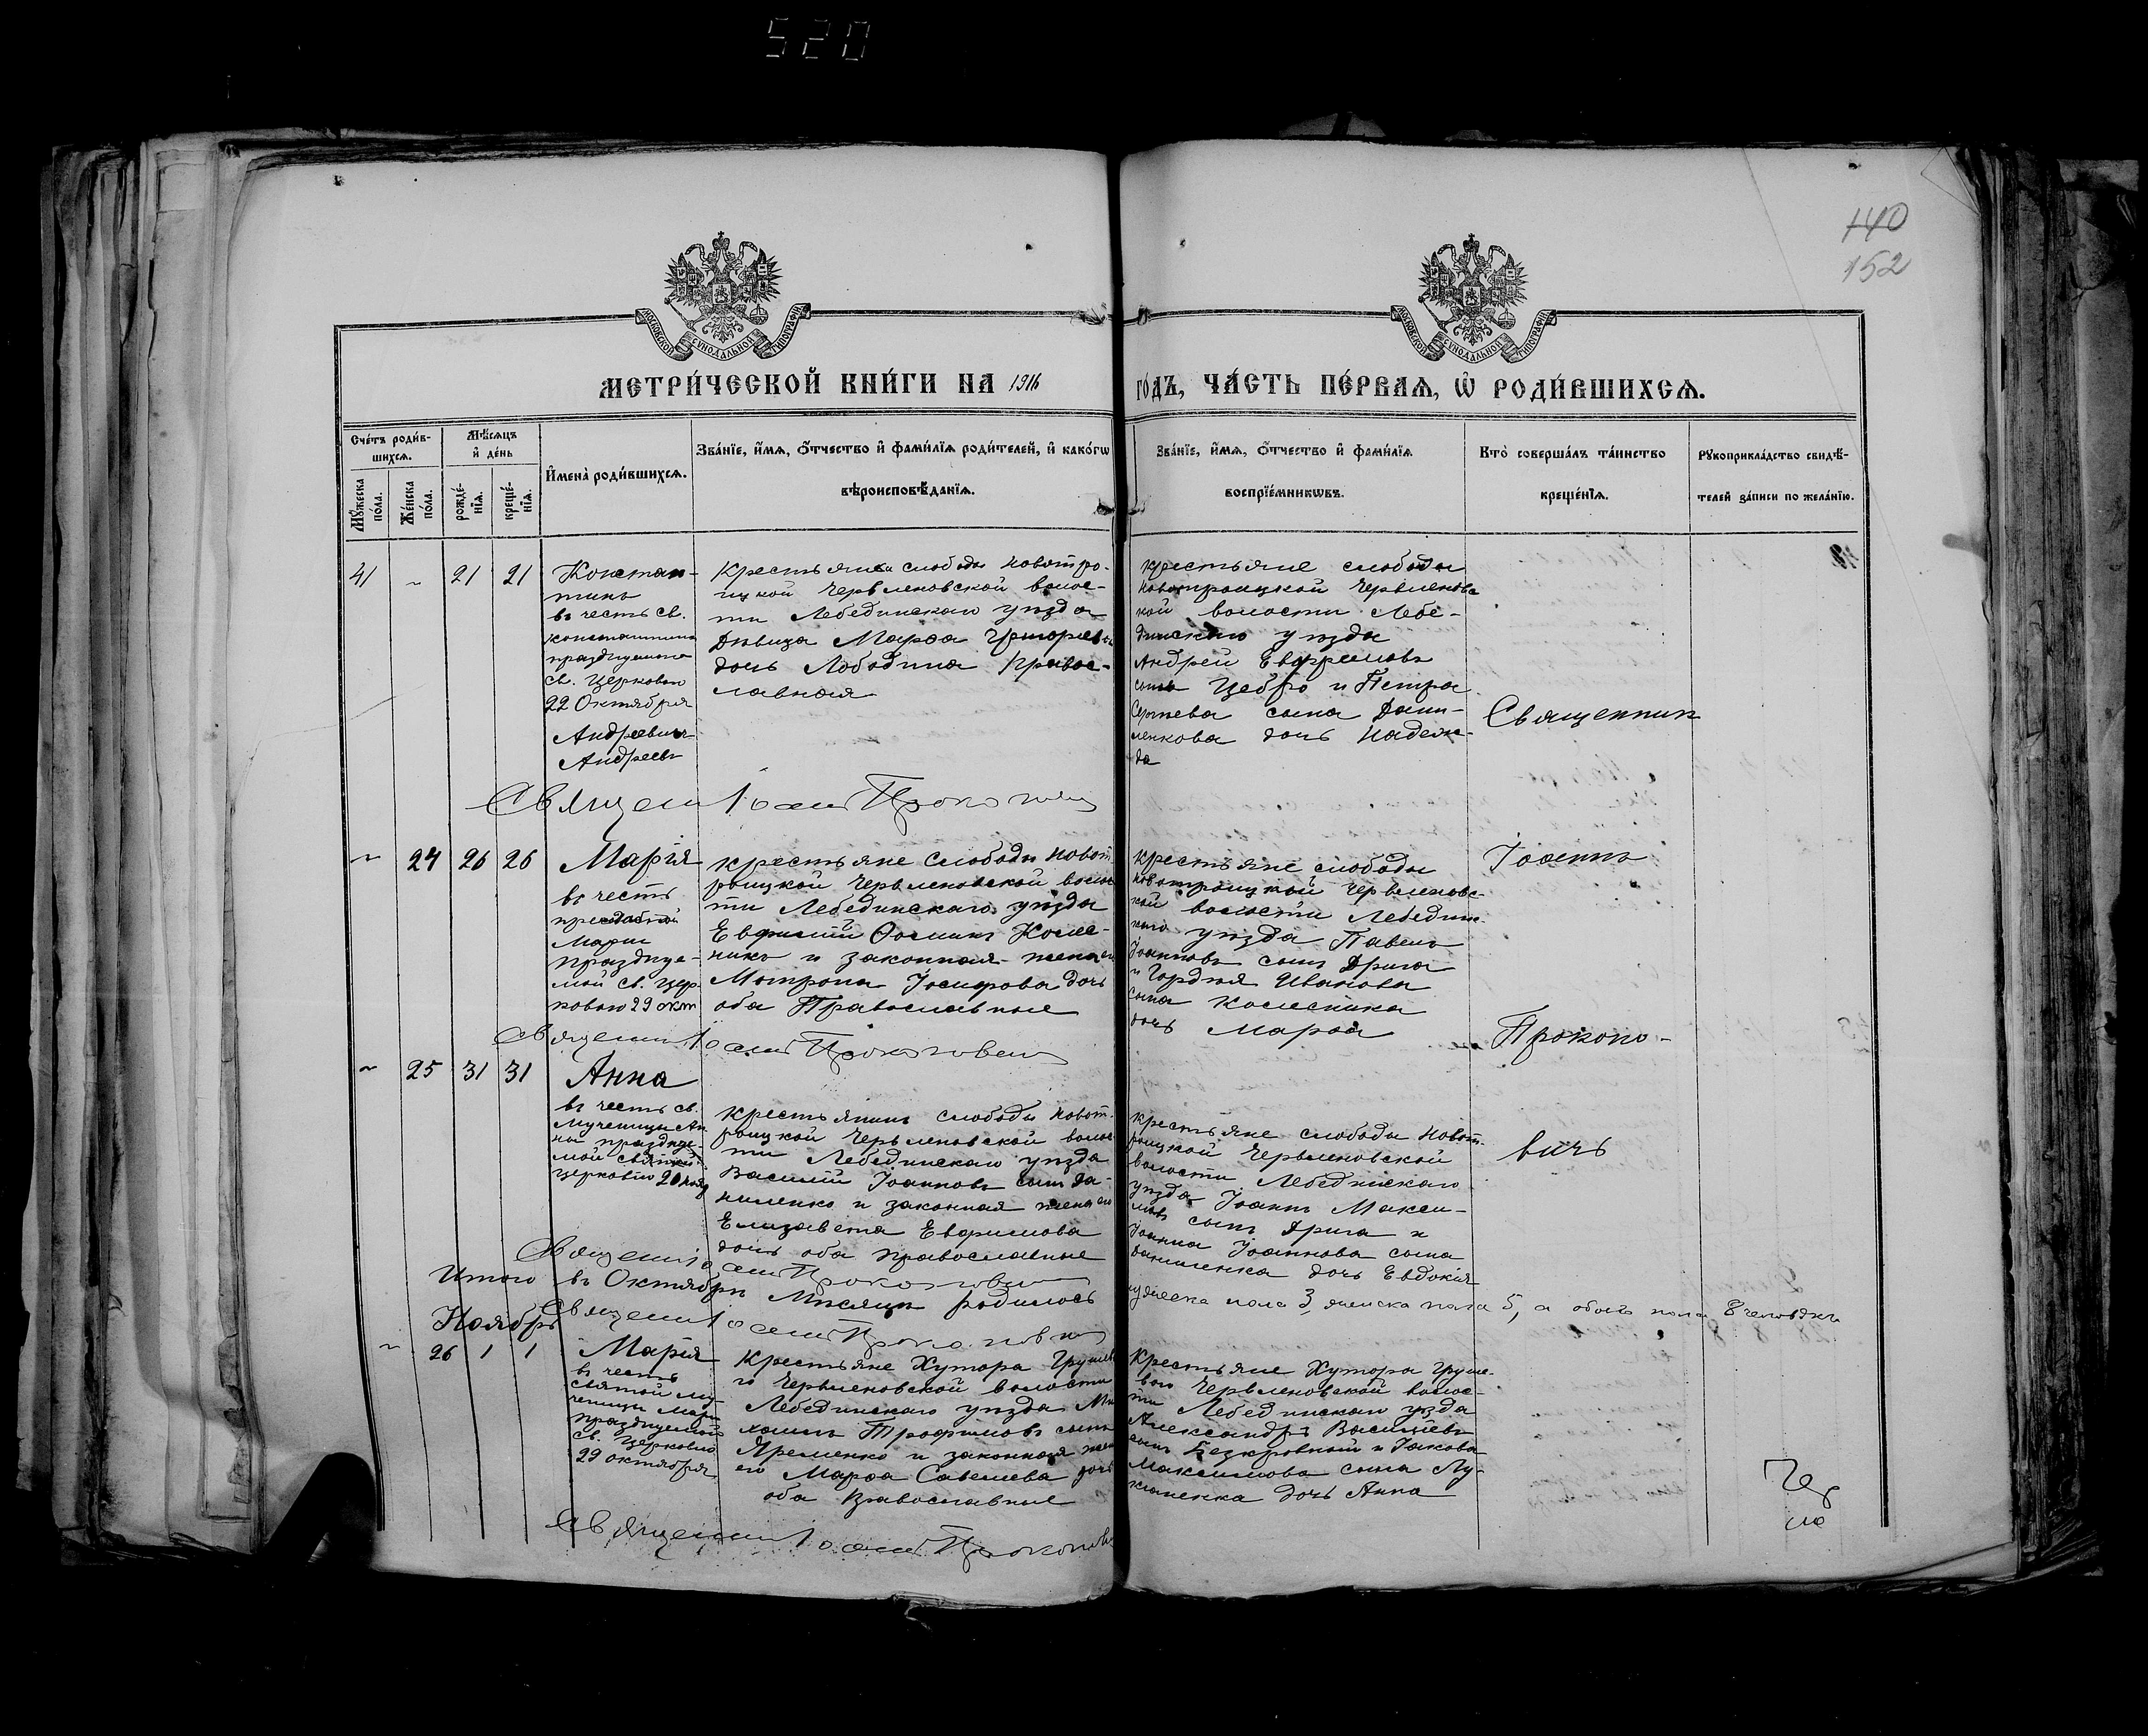 520
140
152
МОСКОВСКОЙ СѴНОДАЛЬНОЙ ТИПОГРАФІИ
МОСКОВСКОЙ СѴНОДАЛЬНОЙ ТИПОГРАФІИ
МЕТРИ́ЧЕСКОЙ КНИ́ГИ НА 1916 ГО́ДЪ, ЧА́СТЬ ПЕ́РВАѦ, Ѡ҆ РОДИ́ВШИХСѦ.
Сче́тъ роди́в-
шихсѧ.
Мꙋ́жеска по́ла.
Же́нска по́ла.
Мѣ́сѧцъ
и҆ де́нь
рожде́-
нїѧ.
креще́-
нїѧ.
И҆мена̀ роди́вшихсѧ.
Зва́нїе, и҆́мѧ, ѻ҆́тчество и҆ фами́лїѧ роди́телей, и҆ како́гѡ
вѣроисповѣ́данїѧ.
Зва́нїе, и҆́мѧ, ѻ҆́тчество и҆ фами́лїѧ
воспрїе́мникѡвъ.
Кто̀ соверша́лъ та́инство
креще́нїѧ.
Рꙋкоприкла́дство свидѣ́-
телей за́писи по жела́нїю.
41 ~ 21 21
Констан-
тинъ
въ честь св.
Константина
св. Церковью
22 Октября
Андреевичъ
Андреевъ
слободы Новотро-
ицкой Червленовской волос-
ти Лебединскаго уѣзда
Дѣвица Марѳа
дочь Лободина Правос-
лавная
крестьяне слободы
Новотроицкой Червленовс
кой волости Лебе-
динскаго уѣзда
Андрей Евфремовъ
сынъ Цебро и Петра
Сергѣева сына Дани-
ленкова дочь Надеж-
да
Священникъ
Священ Іоаннъ Прокопович
~ 24 26 26
Марія
въ честь
Маріи
праздцуе-
мой св. Цер
ковью 29 окт
крестьяне слободы Новот
роицкой Червленовской волос
ти Лебединскаго уѣзда
Евфимій Ѳоминъ Колес-
никъ и законная жена его
Матрона Іосифова дочь
оба Православные
крестьяне слободы
Новотроицкой Червленовс-
кой волости Лебединс-
каго уѣзда Павелъ
Іоанновъ сынъ Дрига
и Гордѣя Иванова
сына Колесника
дочь Марѳа
Іоаннъ
Священ Іоаннъ Прокопович
Прокопо-
~ 25 31 31
Анна
въ честь св.
Мученицы Ан
ны праздцуе-
мой святой
церковью
крестьянинъ слободы Новот-
роицкой Червленовской волос
ти Лебединскаго уѣзда
Василій Іоанновъ сынъ Да-
ниленко и законная жена его
Елизавета Евфимова
дочь оба православные
крестьяне слободы Новот-
роицкой Червленовской
волости Лебединскаго
уѣзда Іоаннъ Макси-
мовъ сынъ Дрига и
Іоанна Іоаннова сына
Даниленка дочь Евдокія
вичъ
Священ Іоаннъ Прокопович
Итого въ Октябрѣ Мѣсяцѣ родилось мужеска пола 3, женска пола 5, а обоего пола 8 человѣкъ
Священ Іоаннъ Прокопович
Ноябрь
~ 26 1 1
Марія
въ честь
святой му-
ченицы Маріи
св. Церковью
29 октября
Крестьяне Хутора Грушев
го Червленовской волости
Лебединскаго уѣзда Ми
хаилъ Трофимовъ сынъ
Яременко и законная жена
его Марѳа Савелиева дочь
оба Православные
Крестьяне Хутора Груше-
ваго Червленовской волос-
ти Лебединскаго уѣзда
Александръ Василіевъ
сынъ Безкровный и Іакова
Максимова сына Лу-
кьяненка дочь Анна
Священ Іоаннъ Прокопов